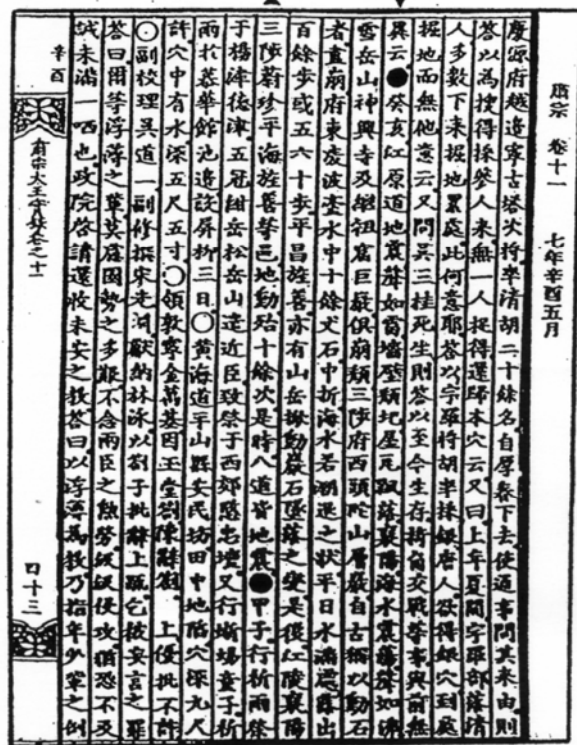 肅宗 卷十一 七年辛酉五月
慶源府越邊寧古塔次將率淸胡二十餘名自厚春下去使通事問其來由則
答以爲搜得採蔘人來無一人捉得還歸本穴云又曰上年夏間孛羅部落淸
人多數下來掘地累處此何意耶答以孛羅將胡半採銀唐人欲得銀穴到處
掘地而無他意云又問吳三桂死生則答以至今生存交戰等事與前無
異云●癸亥江原道地震聲如雷墻壁頹圮屋瓦飄落襄陽海水震蕩聲如沸
雪岳山神興寺及繼祖窟巨巖俱崩頹三陟府西頭陀山層巖自古稱以動石
者盡崩府東凌波臺水中十餘丈石中折海水若潮退之狀平日水滿處露出
百餘步或五六十步平昌旌善亦有山岳掀動巖石墜落之變是後江陵襄陽
三陟蔚珍平海旌善等邑地動殆十餘次是時八道皆地震●甲子行祈雨祭
于楊津德津五冠紺岳松岳山遣近臣致祭于西郊愍忠壇又行蜥蜴童子祈
雨於慕華館池邊設屛柳三日○黃海道平山縣安民坊田中地陷穴深九尺
許穴中有水深五尺五寸○領敦寧金萬基因玉堂箚陳辭箚 上優批不許
○副校理吳道一副修撰宋光淵獻納林泳以箚子批辭上疏乞被妄言之罪
答曰爾等浮薄之輩莫念國勢之多艱不念兩臣之勤勞緩緩侵攻猶恐不及
誠未滿一哂也政院啓請還收未安之敎答曰以浮薄爲敎乃指年少輩之倒
辛酉
肅宗大王實錄卷之十一
四十三